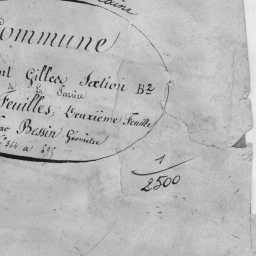 Commune
Gilles Section B2
Feuilles, Deuxième Feuille
Bessin Géomètre
1
2500